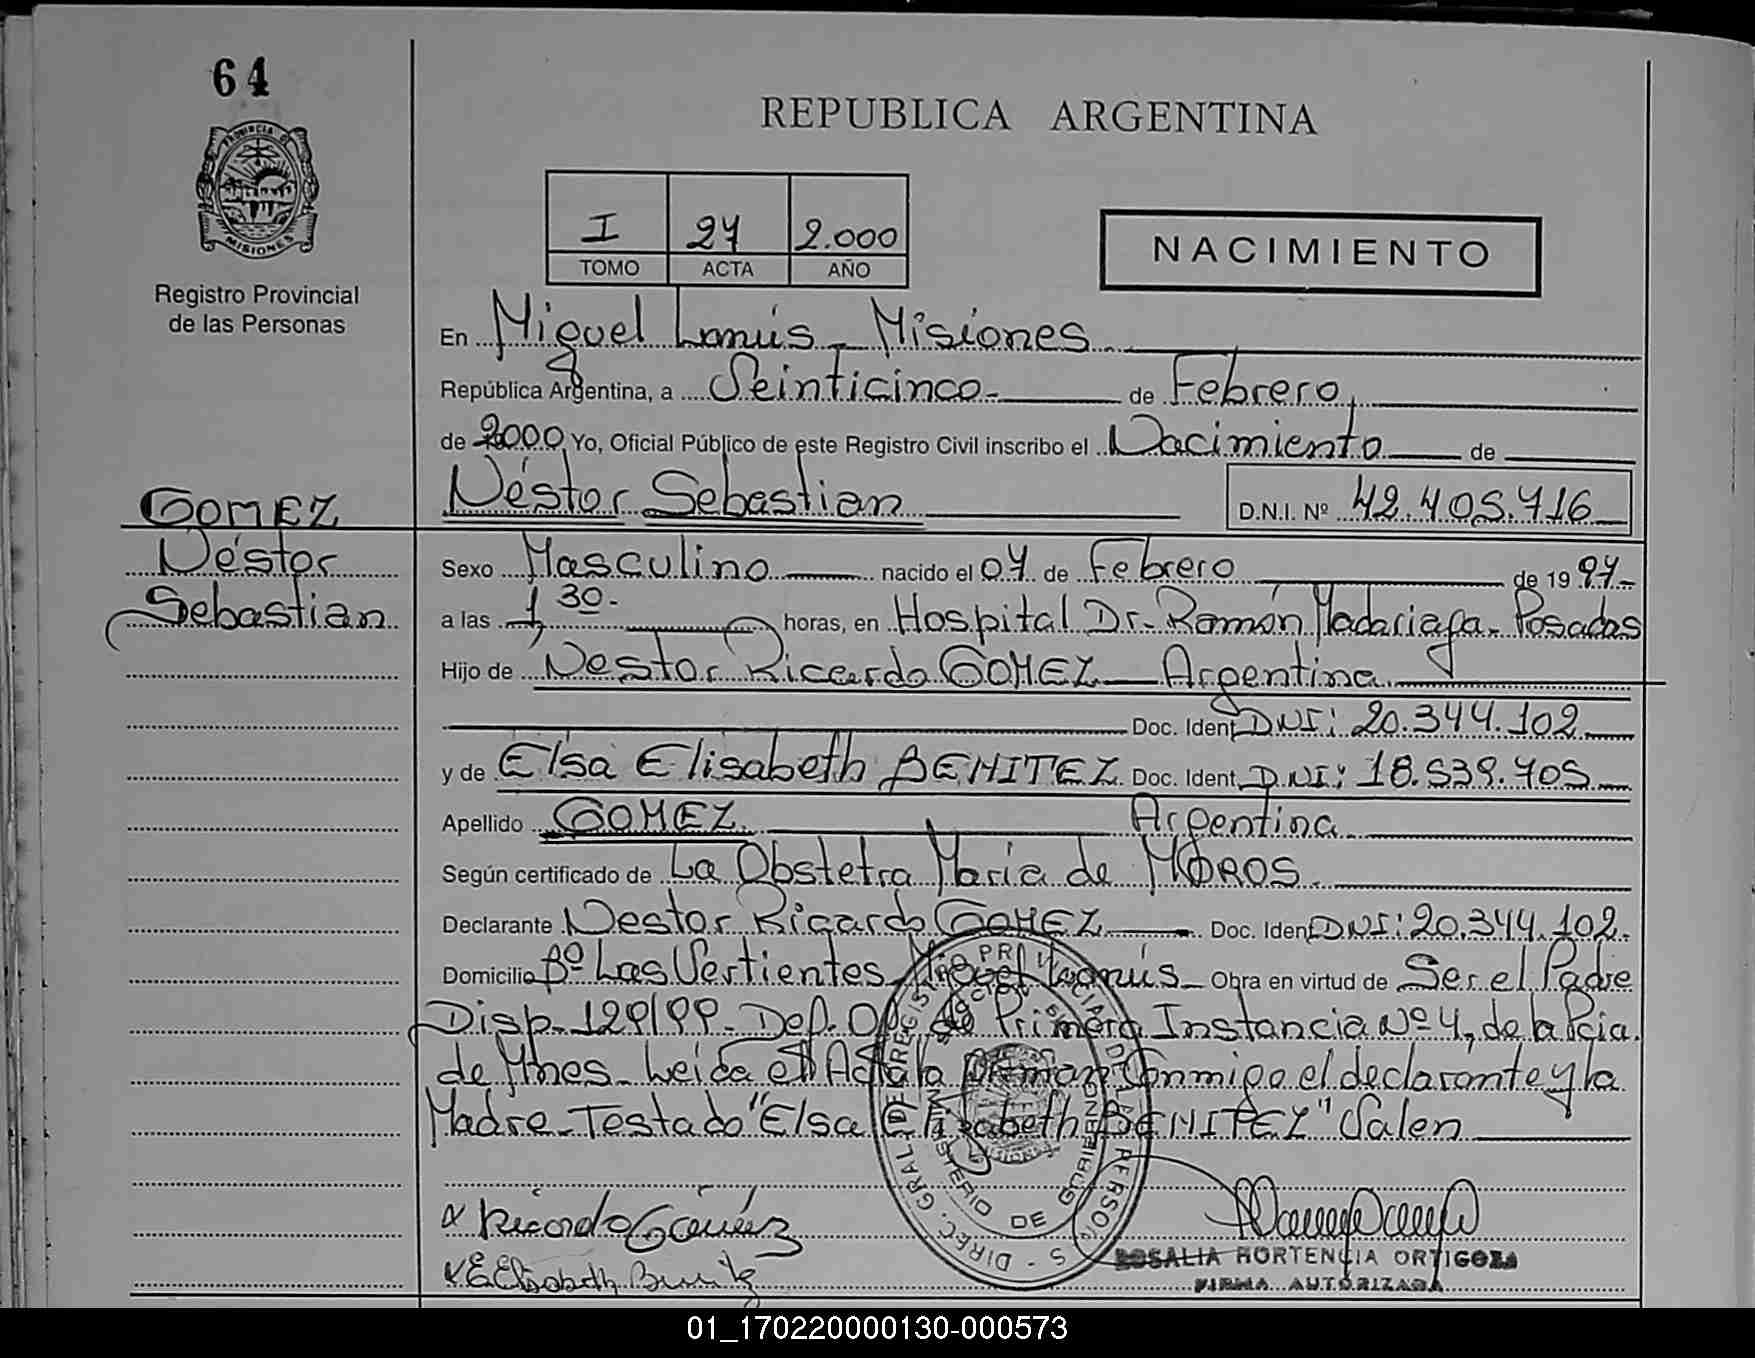 64
REPUBLICA ARGENTINA
PROVINCIA DE MISIONES
Registro Provincial
de las Personas
I 27 2.000
TOMO ACTA AÑO
NACIMIENTO
En Miguel Lanús - Misiones
República Argentina, a Veinticinco de Febrero
de 2000 Yo, Oficial Público de este Registro Civil inscribo el Nacimiento de
GOMEZ
Néstor
Sebastian
Néstor Sebastian D.N.I. Nº 42.405.716
Sexo Masculino nacido el 07 de Febrero de 1997
a las 1,30 horas, en Hospital Dr. Ramón Madariaga. Posadas
Hijo de Nestor Ricardo GOMEZ Argentina
Doc. Ident. DNI: 20.344.102
y de Elsa Elisabeth BENITEZ Doc. Ident. DNI: 18.539.705
Apellido GOMEZ Argentina
Según certificado de La Obstetra Maria de MOROS
Declarante Nestor Ricardo GOMEZ Doc. Ident. DNI: 20.344.102.
Domicilio Bº Las Vertientes Miguel Lanús Obra en virtud de Ser el Padre
Disp. 129/99. Def. Of. de Primera Instancia Nº 4, de la Pcia.
de Mnes. Leída el Acta la firman conmigo el declarante y la
Madre - Testado "Elsa Elisabeth BENITEZ" Valen
x Ricardo Gomez
x E Elisabeth Benitez
DIREC. GRAL. DE REGISTRO PROVINCIAL DE LAS PERSONAS
MINISTERIO DE GOBIERNO
ROSALIA HORTENCIA ORTIGOZA
FIRMA AUTORIZADA
01_170220000130-000573